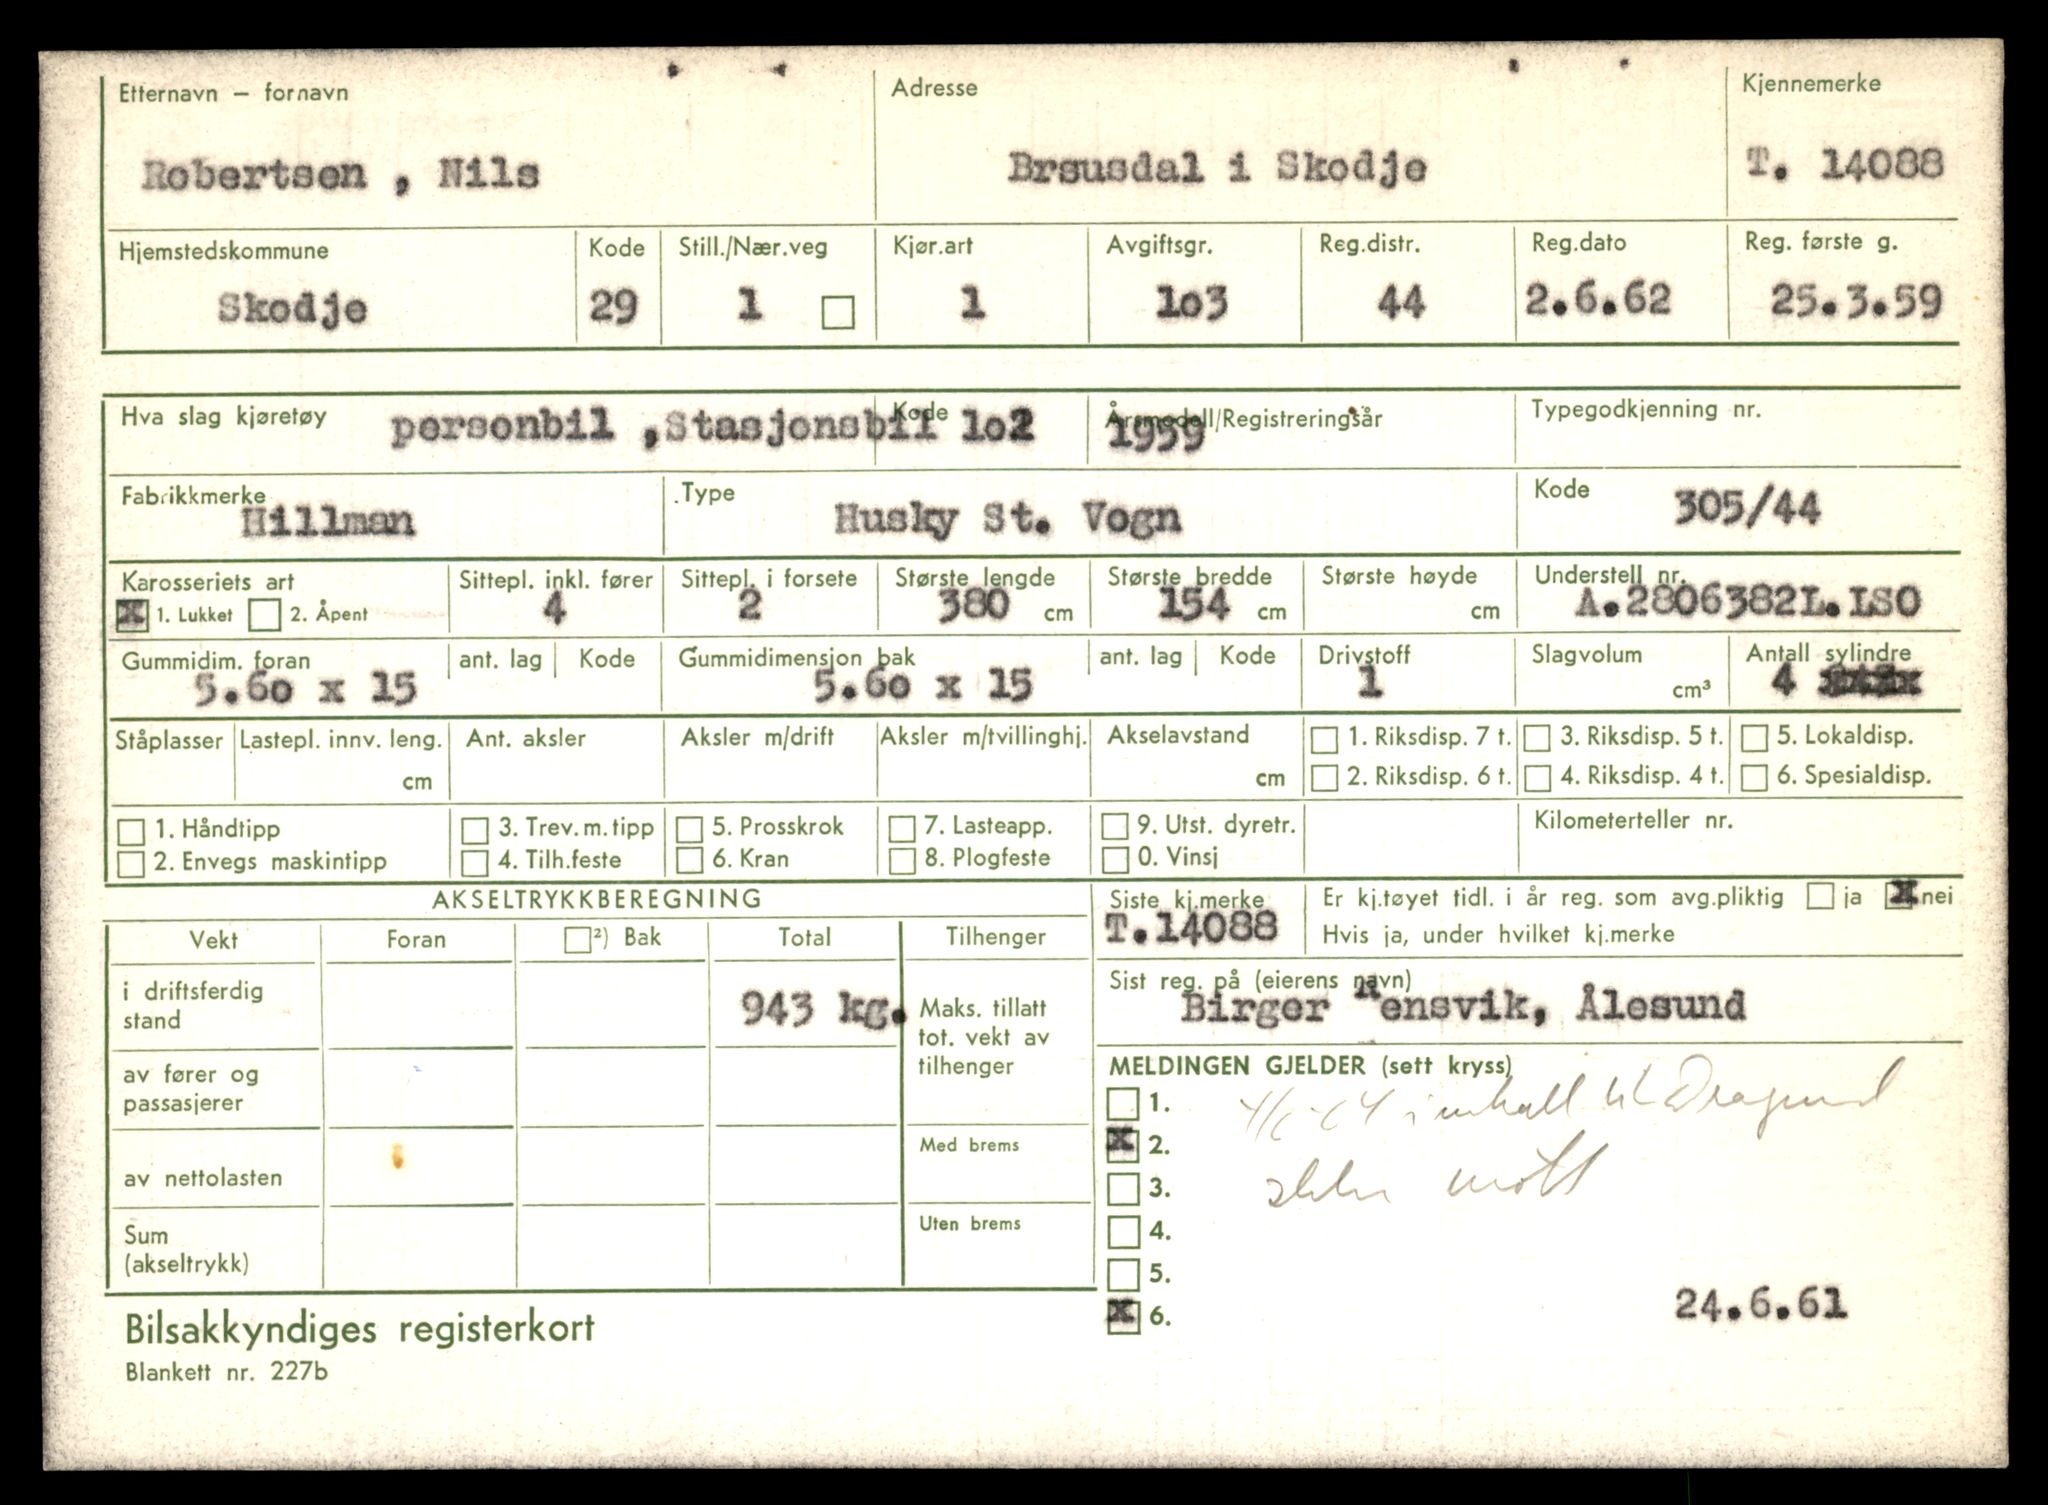 Etternavn – fornavn Adresse Kjennemerke
Robertsen , Nils Brsusdal i Skodje T. 14088
Hjemstedskommune Kode Still./Nær.veg Kjør.art Avgiftsgr. Reg.distr. Reg.dato Reg. første g.
Skodje 29 1 1 1o3 44 2.6.62 25.3.59
Hva slag kjøretøy personbil ,Stasjonsbil Kode 1o2 Årsmodell/Registreringsår 1959 Typegodkjenning nr.
Fabrikkmerke Type Kode
Hillman Husky St. Vogn 305/44
Karosseriets art Sittepl. inkl. fører Sittepl. i forsete Største lengde Største bredde Største høyde Understell nr.
X 1. Lukket 2. Åpent 4 2 380 cm 154 cm cm A.2806382L.LSO
Gummidim. foran ant. lag Kode Gummidimensjon bak ant. lag Kode Drivstoff Slagvolum Antall sylindre
5.6o x 15 5.6o x 15 1 cm³ 4
Ståplasser Lastepl. innv. leng. Ant. aksler Aksler m/drift Aksler m/tvillinghj. Akselavstand 1. Riksdisp. 7 t. 3. Riksdisp. 5 t. 5. Lokaldisp.
cm cm 2. Riksdisp. 6 t. 4. Riksdisp. 4 t. 6. Spesialdisp.
1. Håndtipp 3. Trev. m. tipp 5. Prosskrok 7. Lasteapp. 9. Utst. dyretr. Kilometerteller nr.
2. Envegs maskintipp 4. Tilh.feste 6. Kran 8. Plogfeste 0. Vinsj
AKSELTRYKKBEREGNING Siste kj.merke Er kj.tøyet tidl. i år reg. som avg.pliktig ja X nei
T.14088 Hvis ja, under hvilket kj.merke
Vekt Foran ²) Bak Total Tilhenger
Sist reg. på (eierens navn)
i driftsferdig
stand 943 kg. Maks. tillatt
tot. vekt av
tilhenger
Birger Rensvik, Ålesund
av fører og
passasjerer
MELDINGEN GJELDER (sett kryss)
1.
X 2.
3.
4.
5.
X 6.
i
av nettolasten Med brems
Sum
(akseltrykk) Uten brems
24.6.61
Bilsakkyndiges registerkort
Blankett nr. 227b